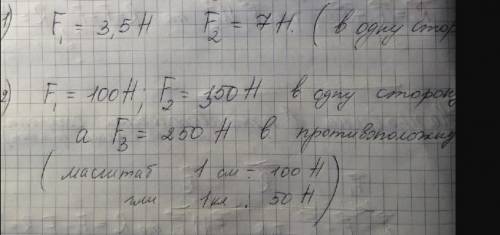 1) F₁ = 3,5 Н F₂ = 7 Н. (в одну стор
2) F₁ = 100 Н; F₂ = 350 Н в одну сторону
а F₃ = 250 Н в противоположну
(масштаб 1 см = 100 Н
или 1 кл. 50 Н)